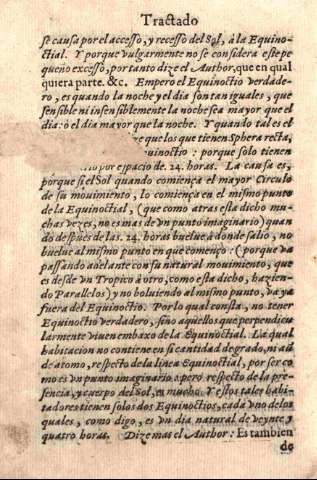 Tractado
se causa por el accesso, y recesso del Sol, à la Equino-
ctial. Y porque vulgarmente no se considera este pe
queño excesso, por tanto dize el Author, que en qual
quiera parte. &c. Empero el Equinoctio verdade-
ro, es quando la noche y el dia son tan iguales, que
sensible ni insensiblemente la noche sea mayor que el
dia: ò el dia mayor que la noche. Y quando tales el
que los que tienen Sphera recta,
uinoctio: porque solo tienen
rio por espacio de. 24. horas. La causa es,
porque si el Sol quando comiença el mayor Circulo
de su mouimiento, lo comiença en el mismo punto
de la Equinoctial, (que como atras esta dicho mu-
chas vezes, no es mas de vn punto imaginario) quan
do despues de las. 24. horas buelue à donde salio, no
buelue al mismo punto en que començo: (porque va
passando adelante con su natural mouimiento, que
es desde vn Tropico à otro, como esta dicho, hazien-
do Parallelos) y no boluiendo al mismo punto, va ya
fuera del Equinoctio. Por lo qual consta, no tener
Equinoctio verdadero, sino aquellos que perpendicu
larmente viuen embaxo de la Equinoctial. La qual
habitacion no contiene en si cantidad de grado, ni aũ
de atomo, respecto de la linea Equinoctial, por ser co
mo es vn punto imaginario: pero respecto de la pre-
sencia, y cuerpo del Sol, es mucho. Y estos tales habi-
tadores tienen solos dos Equinoctios, cada vno de los
quales, como digo, es vn dia natural de veynte y
quatro horas. Dize mas el Author: Es tambien
de